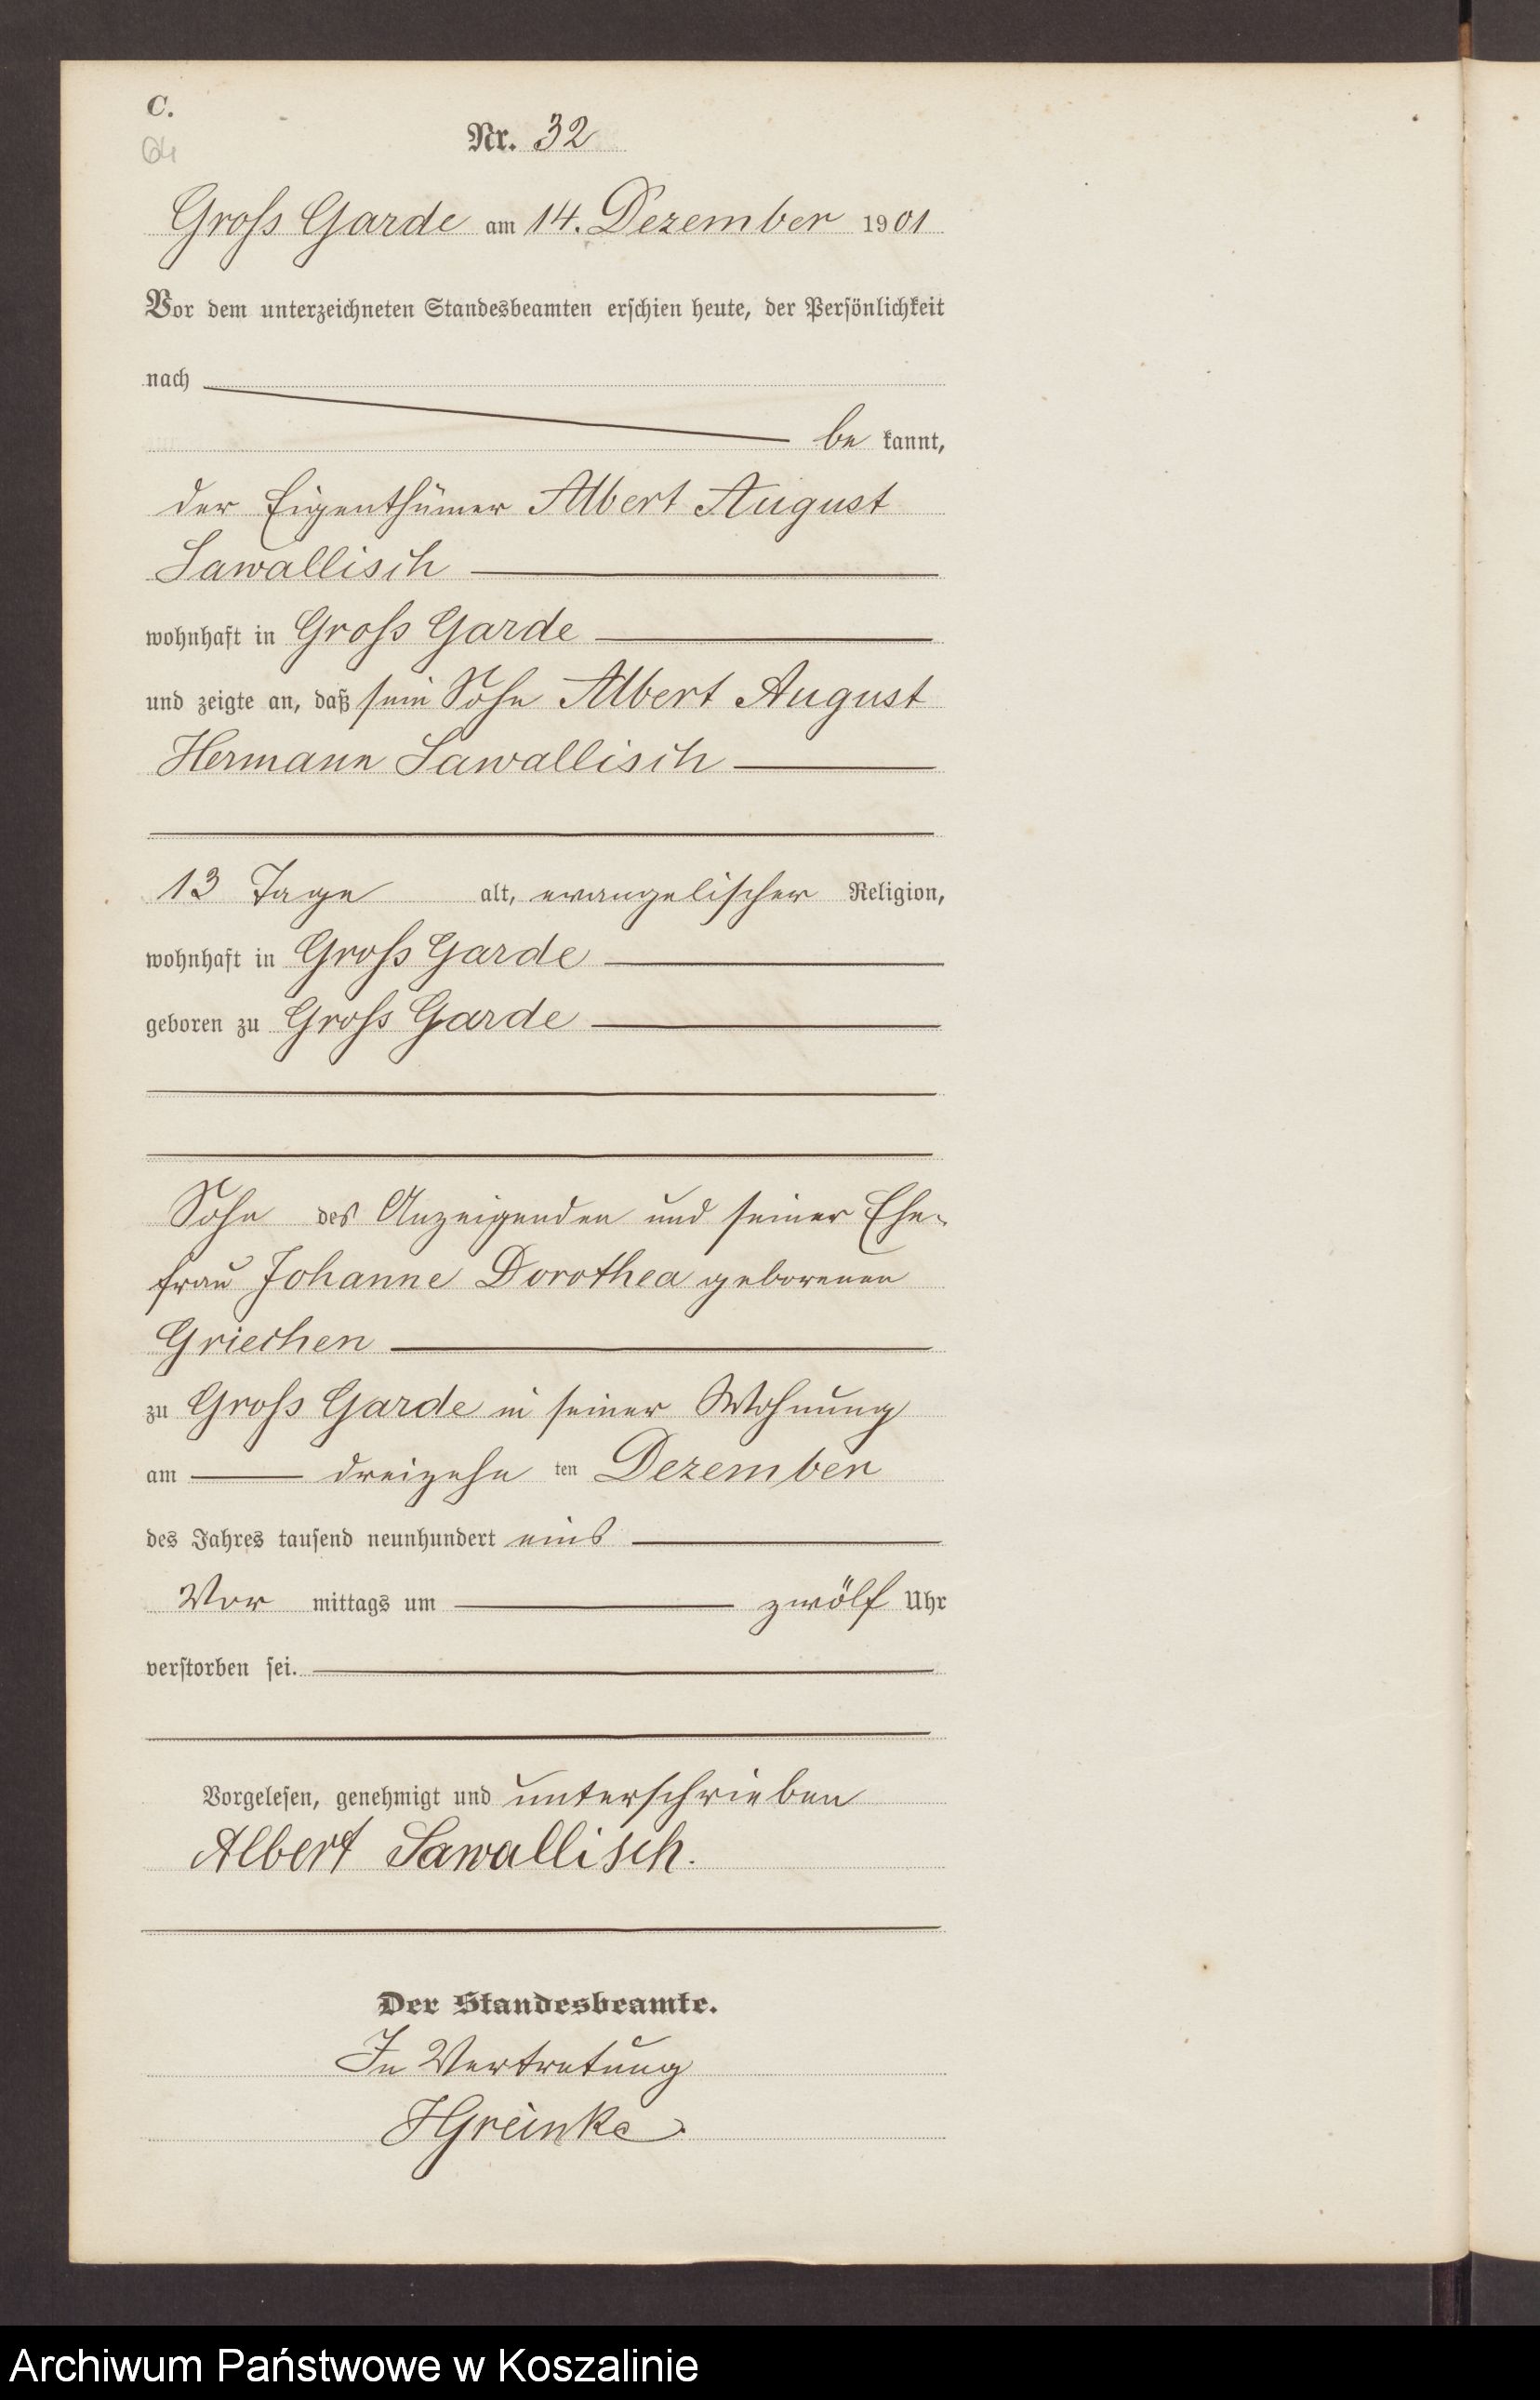 C.
64
Nr. 32
Gross Garde am 14. Dezember 1901
Vor dem unterzeichneten Standesbeamten erschien heute, der Persönlichkeit
nach
be kannt,
der Eigenthümer Albert August
Sawallisch
wohnhaft in Gross Garde
und zeigte an, daß sein Sohn Albert August
Hermann Sawallisch
13 Tage alt, evangelischer Religion,
wohnhaft in Gross Garde
geboren zu Gross Garde
Sohn des Anzeigenden und seiner Ehe-
frau Johanne Dorothea geborenen
Griechen
zu Gross Garde in seiner Wohnung
am dreizehn ten Dezember
des Jahres tausend neunhundert eins
Vor mittags um zwölf Uhr
verstorben sei.
Vorgelesen, genehmigt und unterschrieben
Albert Sawallisch.
Der Standesbeamte.
In Vertretung
HGreinke
Archiwum Państwowe w Koszalinie